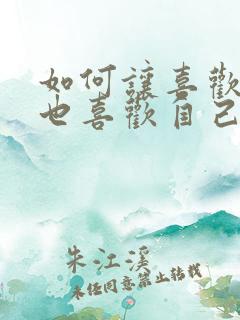 如何讓喜歡
也喜歡自己
朱江溪
未任同意禁止转载